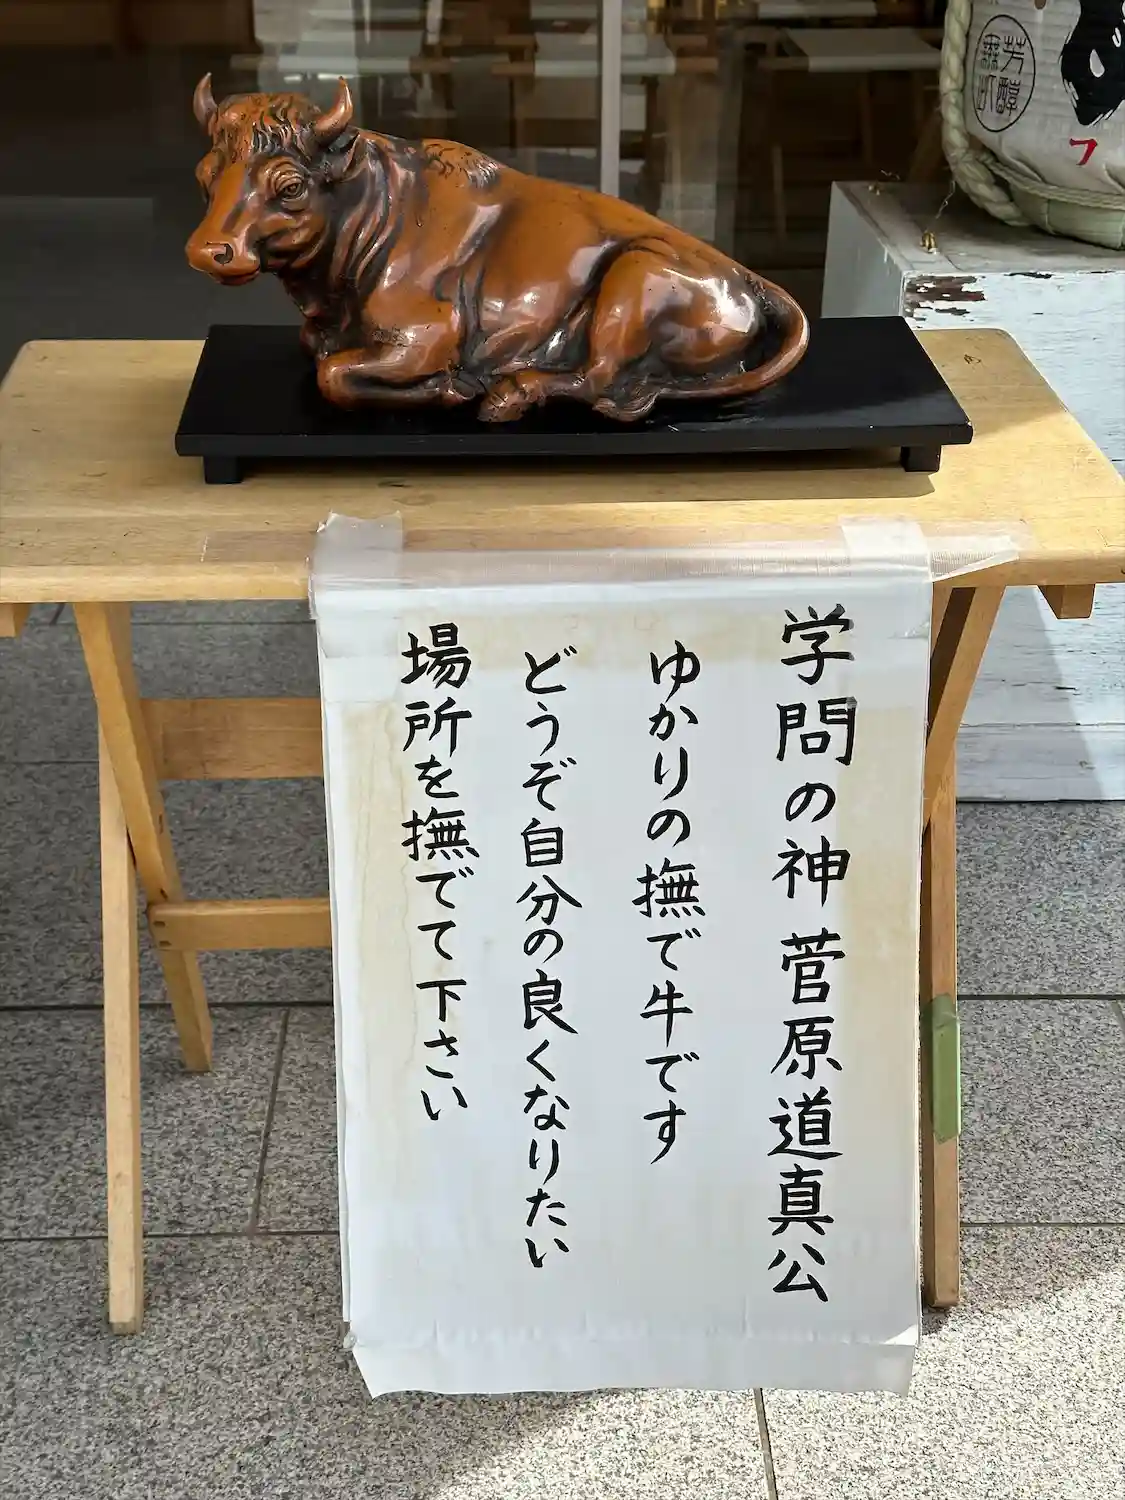 学問の神 菅原道真公
ゆかりの撫で牛です
どうぞ自分の良くなりたい
場所を撫でて下さい
芳醇
フ